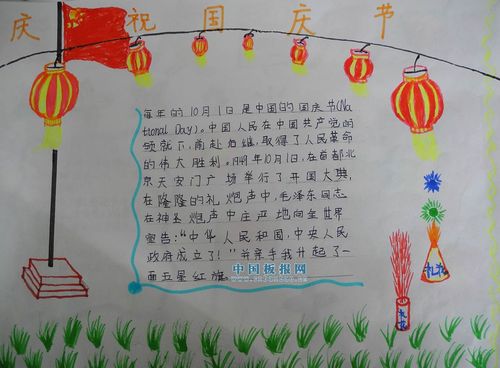 庆祝国庆节
每年的10月1日是中国的国庆节(Na
tional Day)。中国人民在中国共产党的
领就下,前赴后继,取得了人民革命
的伟大胜利。1949年10月1日,在首都北
京天安门广场举行了开国大典,
在隆隆的礼炮声中,毛泽东同志
在神圣炮声中庄严地向全世界
宣告:“中华人民和国,中央人民
政府成立了!”并亲手我升起了一
面五星红旗。
中国板报网
礼花
礼花